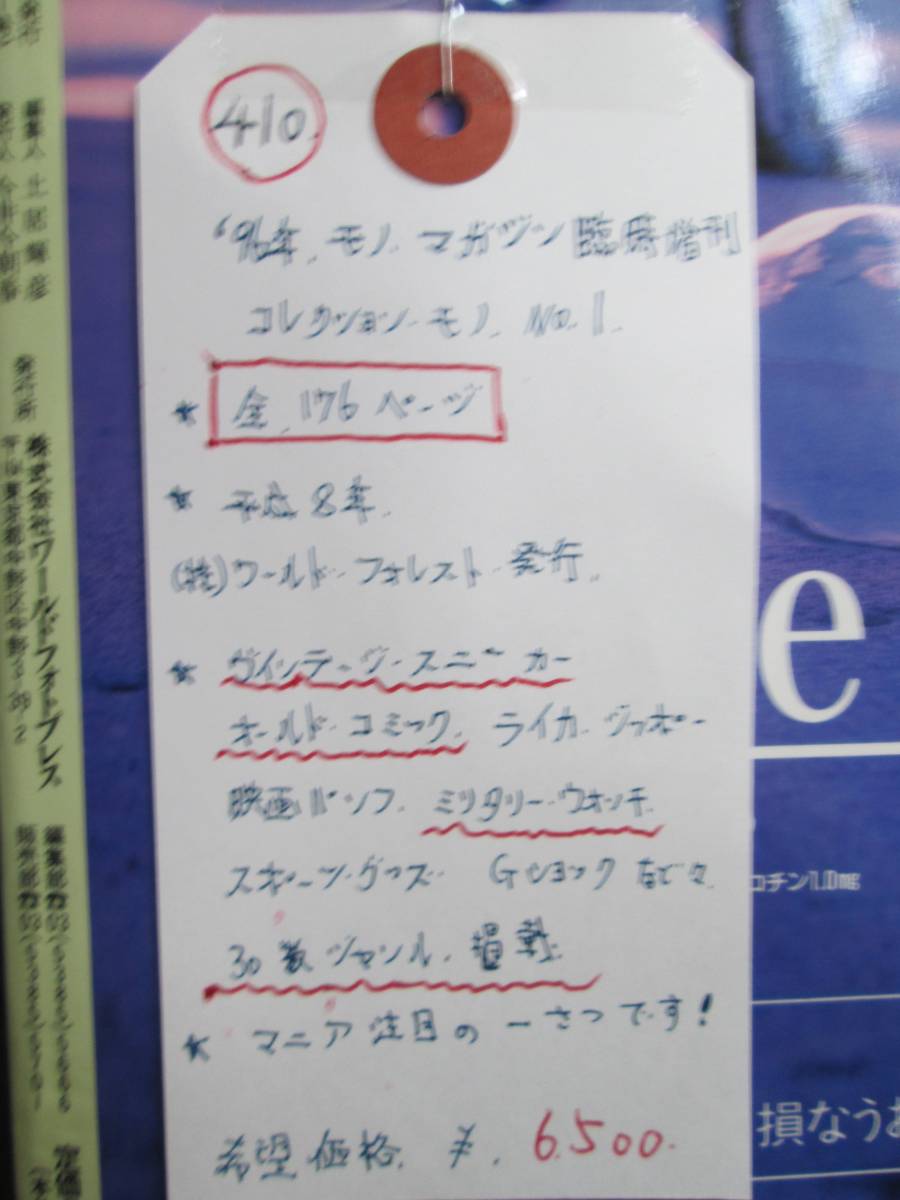 410.
'96年. モノ. マガジン 臨時増刊
コレクション・モノ. No.1.
★ 全. 176 ページ
★ 平成8年.
(株)ワールド・フォレスト 発行.
★ ヴィンテージ・スニーカー
オールド・コミック. ライカ. ジッポー
映画パンフ. ミリタリー・ウォッチ.
スポーツ・グッズ Gショック など々.
30数ジャンル. 掲載.
★ マニア注目の一さつです!
希望価格. ¥. 6.500.
発行
編集人
発行所 株式会社ワールドフォトプレス
定価
e
コチン1.0mg
損なうお